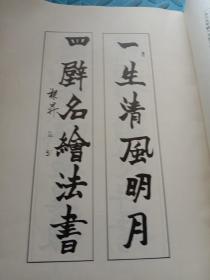 一生清風明月
四壁名繪法書